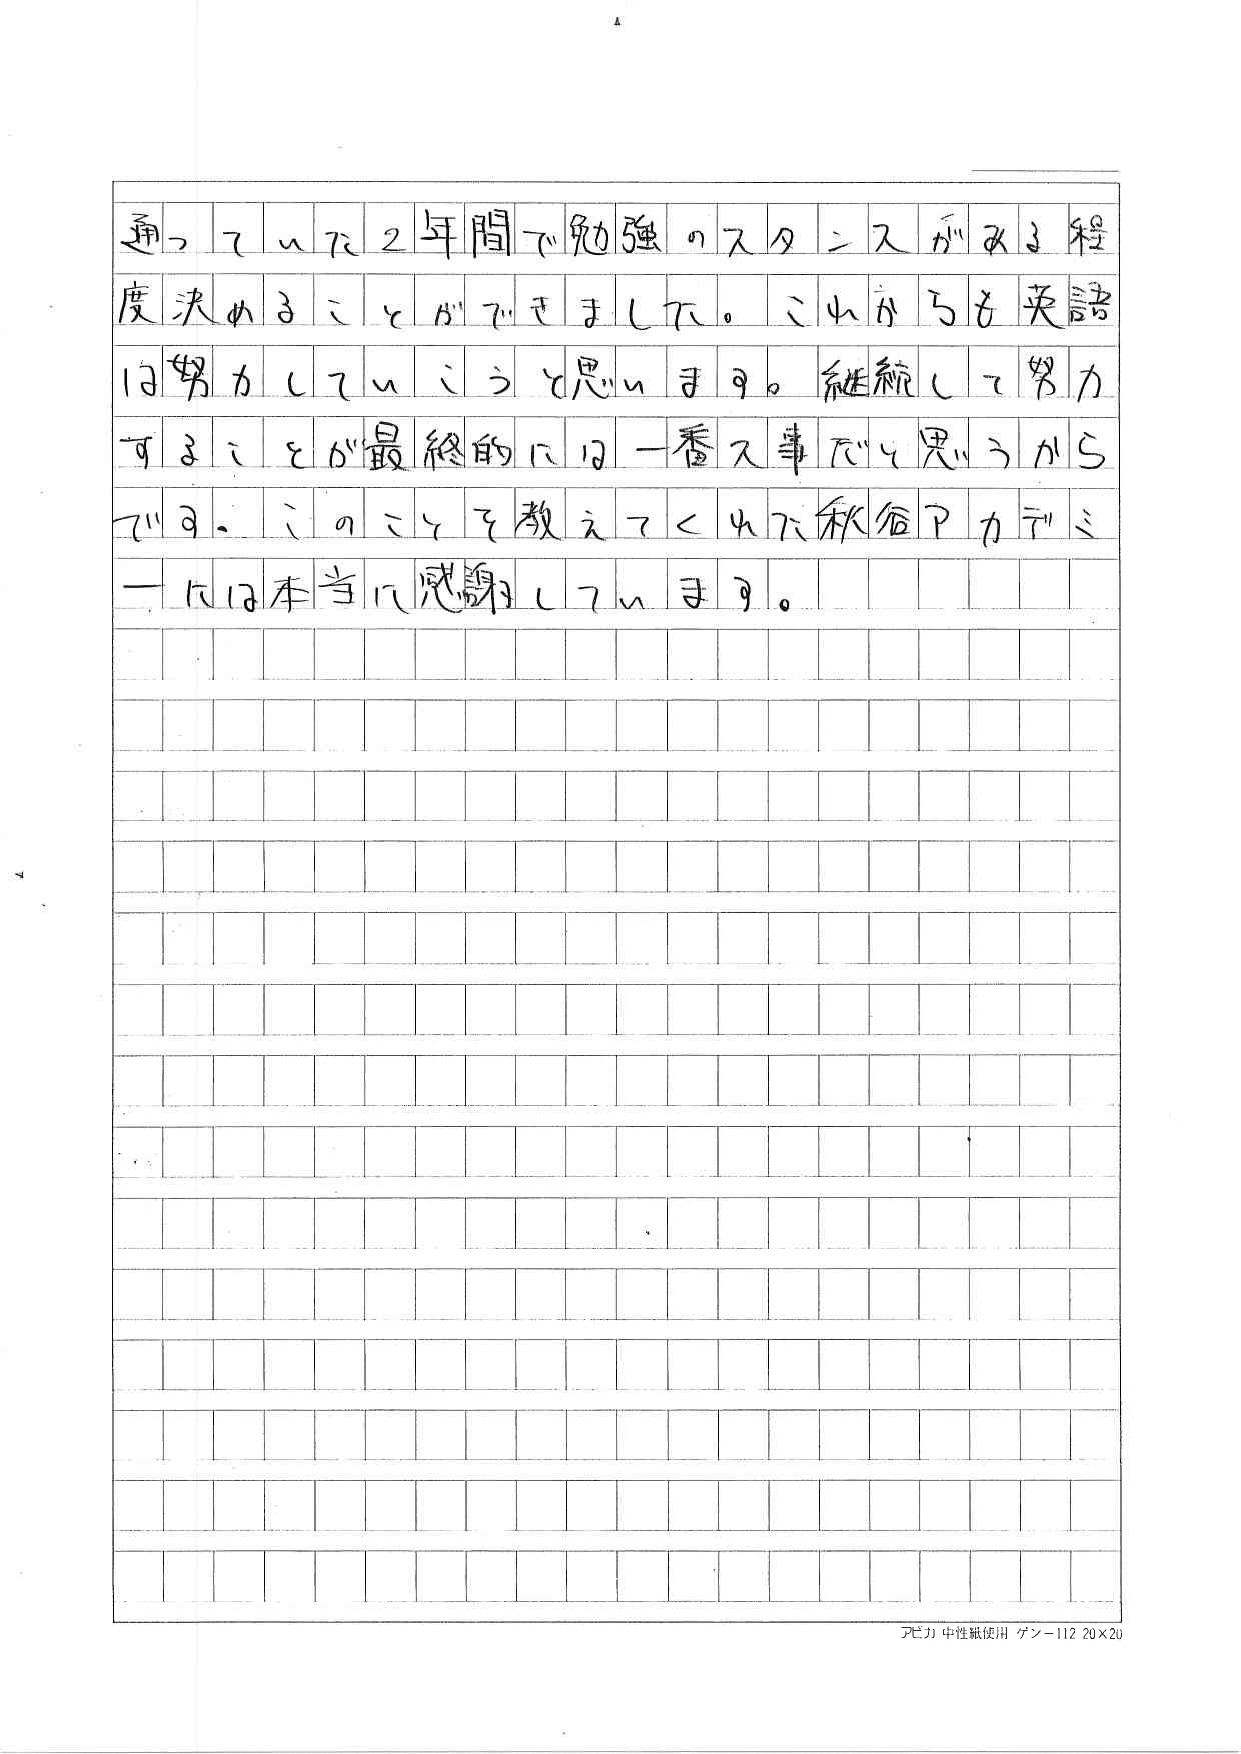 通っていた2年間で勉強のスタンスがある程
度決めることができました。これからも英語
は努力していこうと思います。継続して努力
することが最終的には一番大事だと思うから
です。このことを教えてくれた秋谷アカデミ
ーには本当に感謝しています。
アピカ 中性紙使用 ゲンー112 20×20